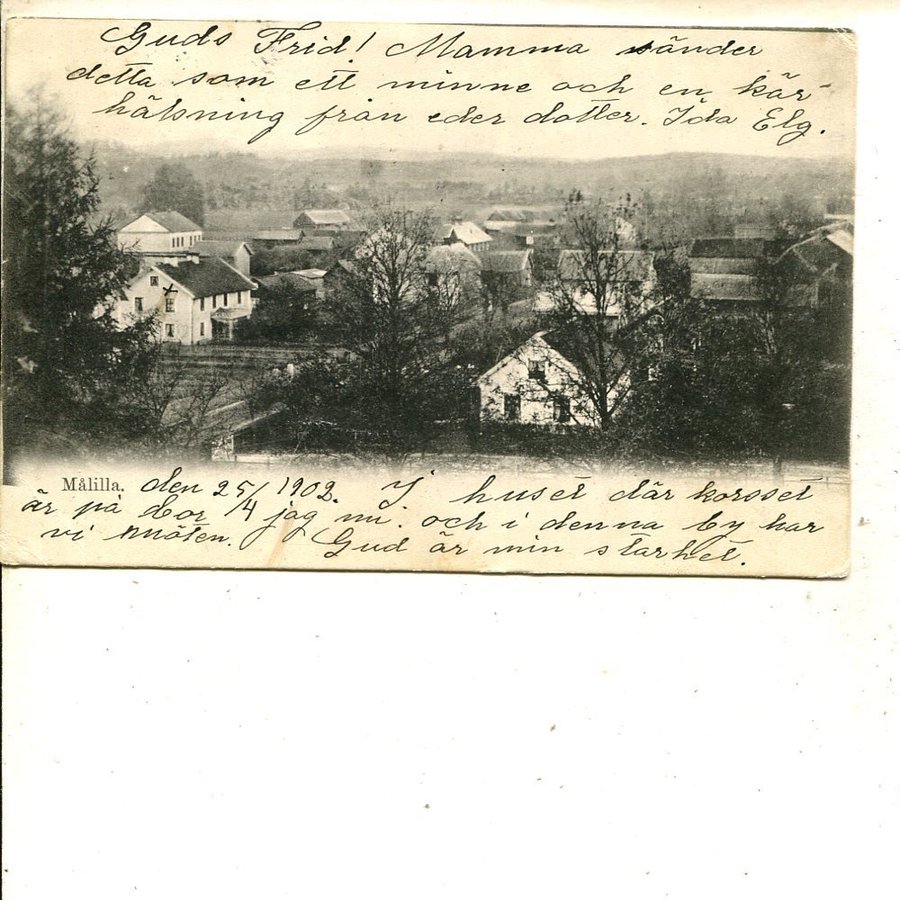 Guds Frid! Mamma sänder
detta som ett minne och en kär
hälsning från eder dotter. Ida Elg.
Målilla. den 25/4 1902. I huset där korset
är på bor jag nu. och i denna by har
vi möten. Gud är min starhet.